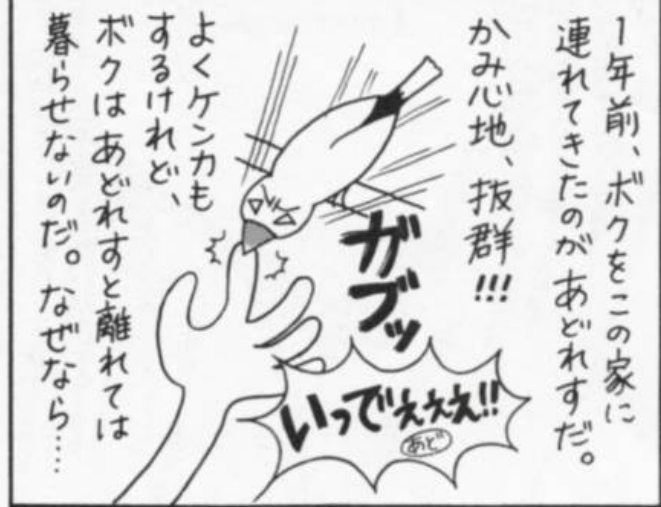 1年前、ボクをこの家に
連れてきたのがあどれすだ。
かみ心地、抜群!!!
ガブッ
いってぇぇぇ!!
あど
よくケンカも
するけれど、
ボクはあどれすと離れては
暮らせないのだ。なぜなら……